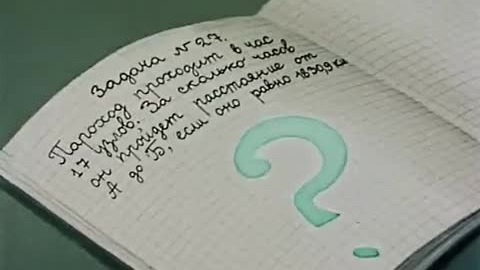 Задача N 27.
Пароход проходит в час
17 узлов. За сколько часов
он пройдет расстояние от
А до Б, если оно равно 1830,9 км
?